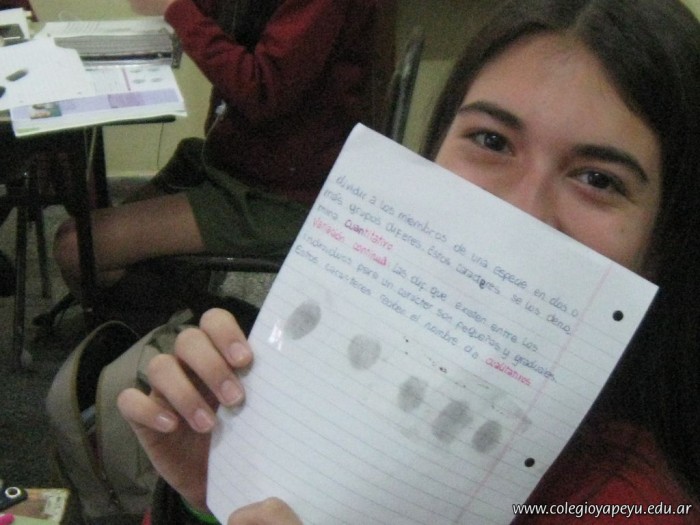 dividir a los miembros de una especie en dos o
más grupos diferens. Estos caracteres se los deno
mina cuantitativo
Variación continua: las dif que existen entre los
individuos para un caracter son pequeñas y graduales
Estos caracteres reciben el nombre de cualitativos
www.colegioyapeyu.edu.ar